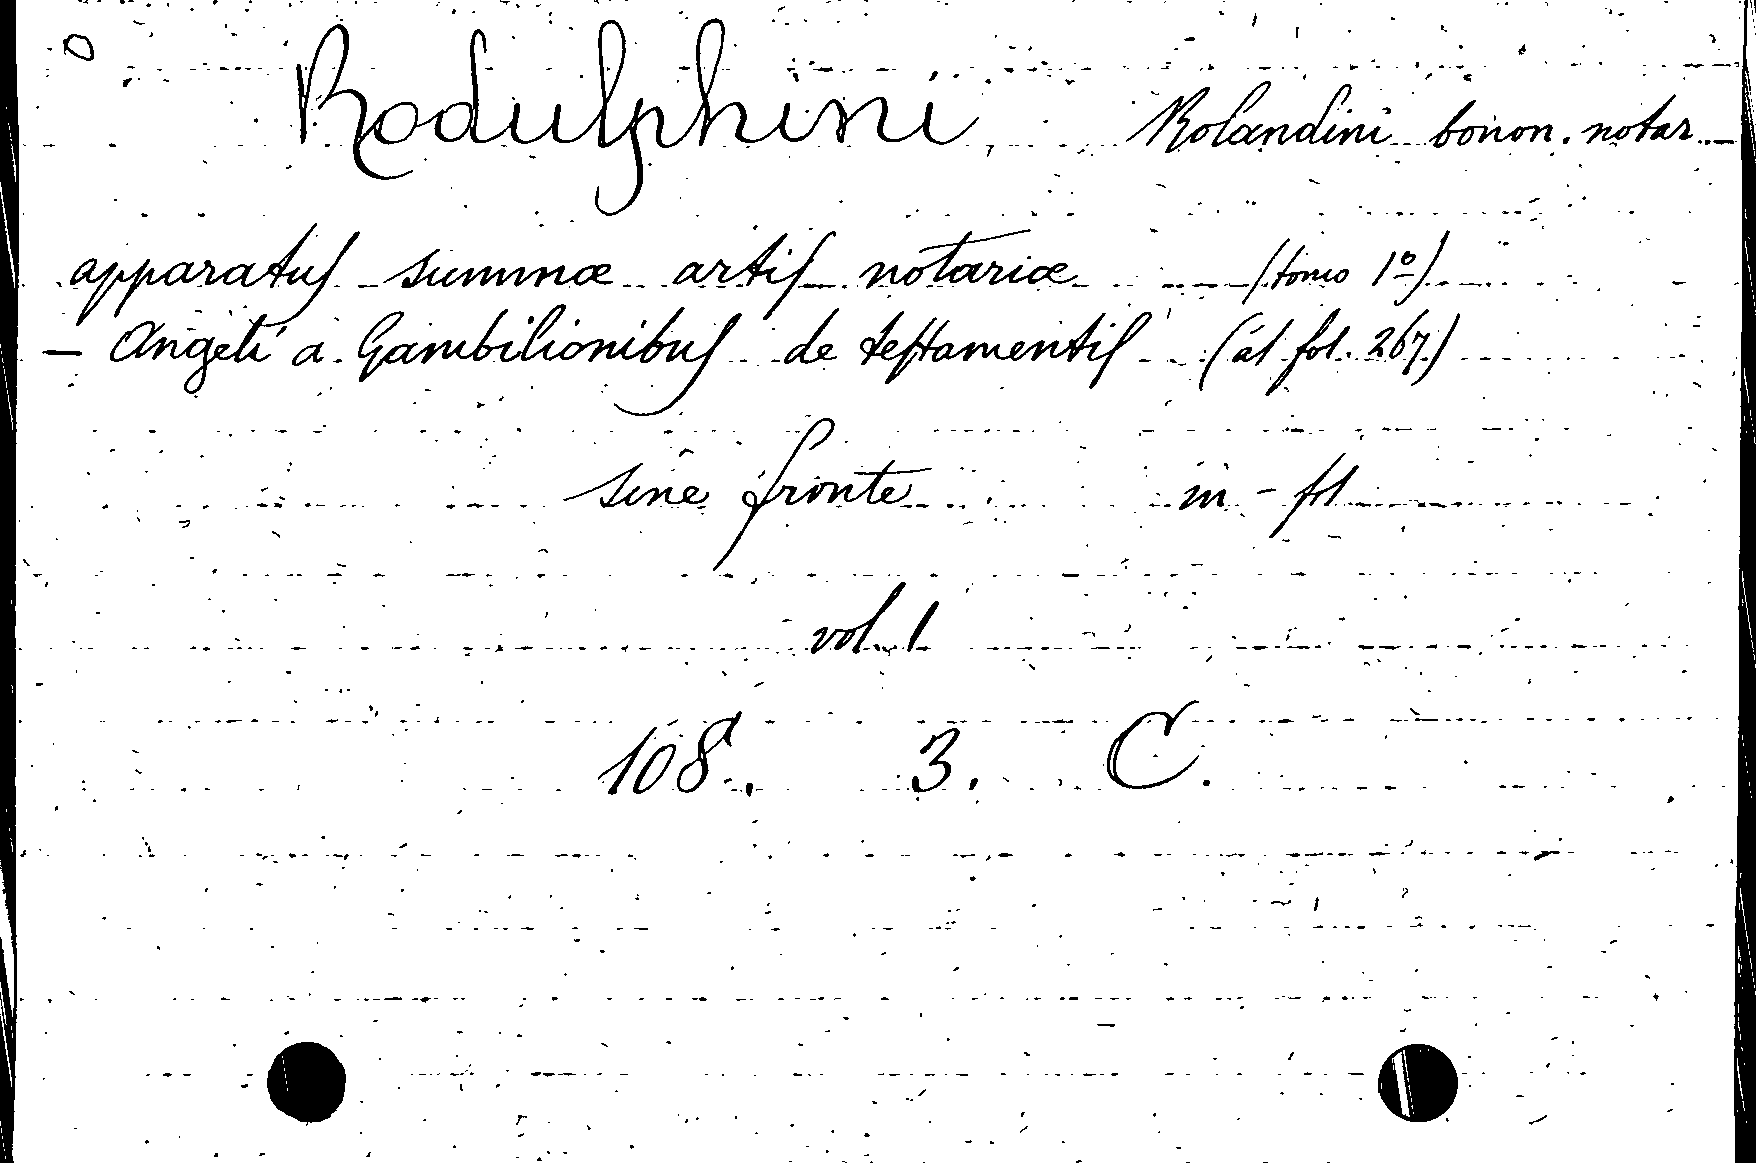 Rodulphini Rolandini bonon. notar. —
apparatus summæ artis notariæ (tomo 1º)
— Angeli a Gambilionibus de testamentis (al fol. 267.)
sine fronte in - fol
vol. 1
108. 3. C.